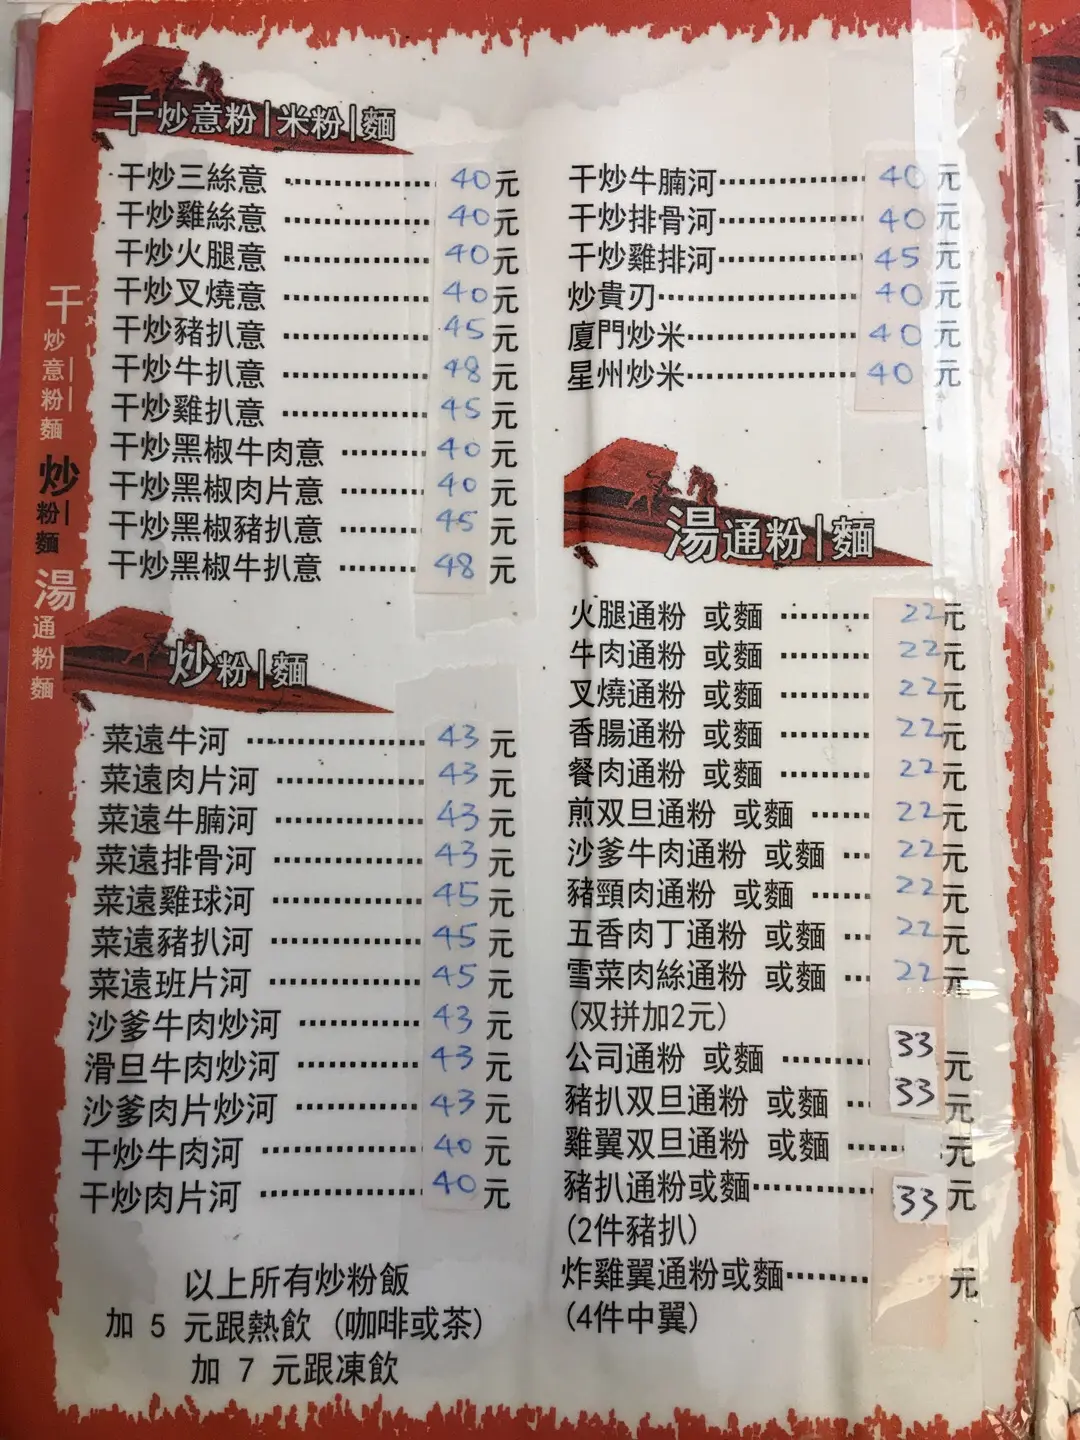 干炒意粉|米粉|麵
干炒三絲意 40元
干炒雞絲意 40元
干炒火腿意 40元
干炒叉燒意 40元
干炒豬扒意 45元
干炒牛扒意 48元
干炒雞扒意 45元
干炒黑椒牛肉意 40元
干炒黑椒肉片意 40元
干炒黑椒豬扒意 45元
干炒黑椒牛扒意 48元
炒粉|麵
菜遠牛河 43元
菜遠肉片河 43元
菜遠牛腩河 43元
菜遠排骨河 43元
菜遠雞球河 45元
菜遠豬扒河 45元
菜遠班片河 45元
沙爹牛肉炒河 43元
滑旦牛肉炒河 43元
沙爹肉片炒河 43元
干炒牛肉河 40元
干炒肉片河 40元
以上所有炒粉飯
加 5 元跟熱飲 (咖啡或茶)
加 7 元跟凍飲
干炒牛腩河 40元
干炒排骨河 40元
干炒雞排河 45元
炒貴刃 40元
廈門炒米 40元
星州炒米 40元
湯通粉|麵
火腿通粉 或麵 22元
牛肉通粉 或麵 22元
叉燒通粉 或麵 22元
香腸通粉 或麵 22元
餐肉通粉 或麵 22元
煎双旦通粉 或麵 22元
沙爹牛肉通粉 或麵 22元
豬頸肉通粉 或麵 22元
五香肉丁通粉 或麵 22元
雪菜肉絲通粉 或麵 22元
(双拼加2元)
公司通粉 或麵 33元
豬扒双旦通粉 或麵 33元
雞翼双旦通粉 或麵 元
豬扒通粉或麵 33元
(2件豬扒)
炸雞翼通粉或麵 元
(4件中翼)
干炒意|粉|麵
炒粉|麵
湯通粉|麵